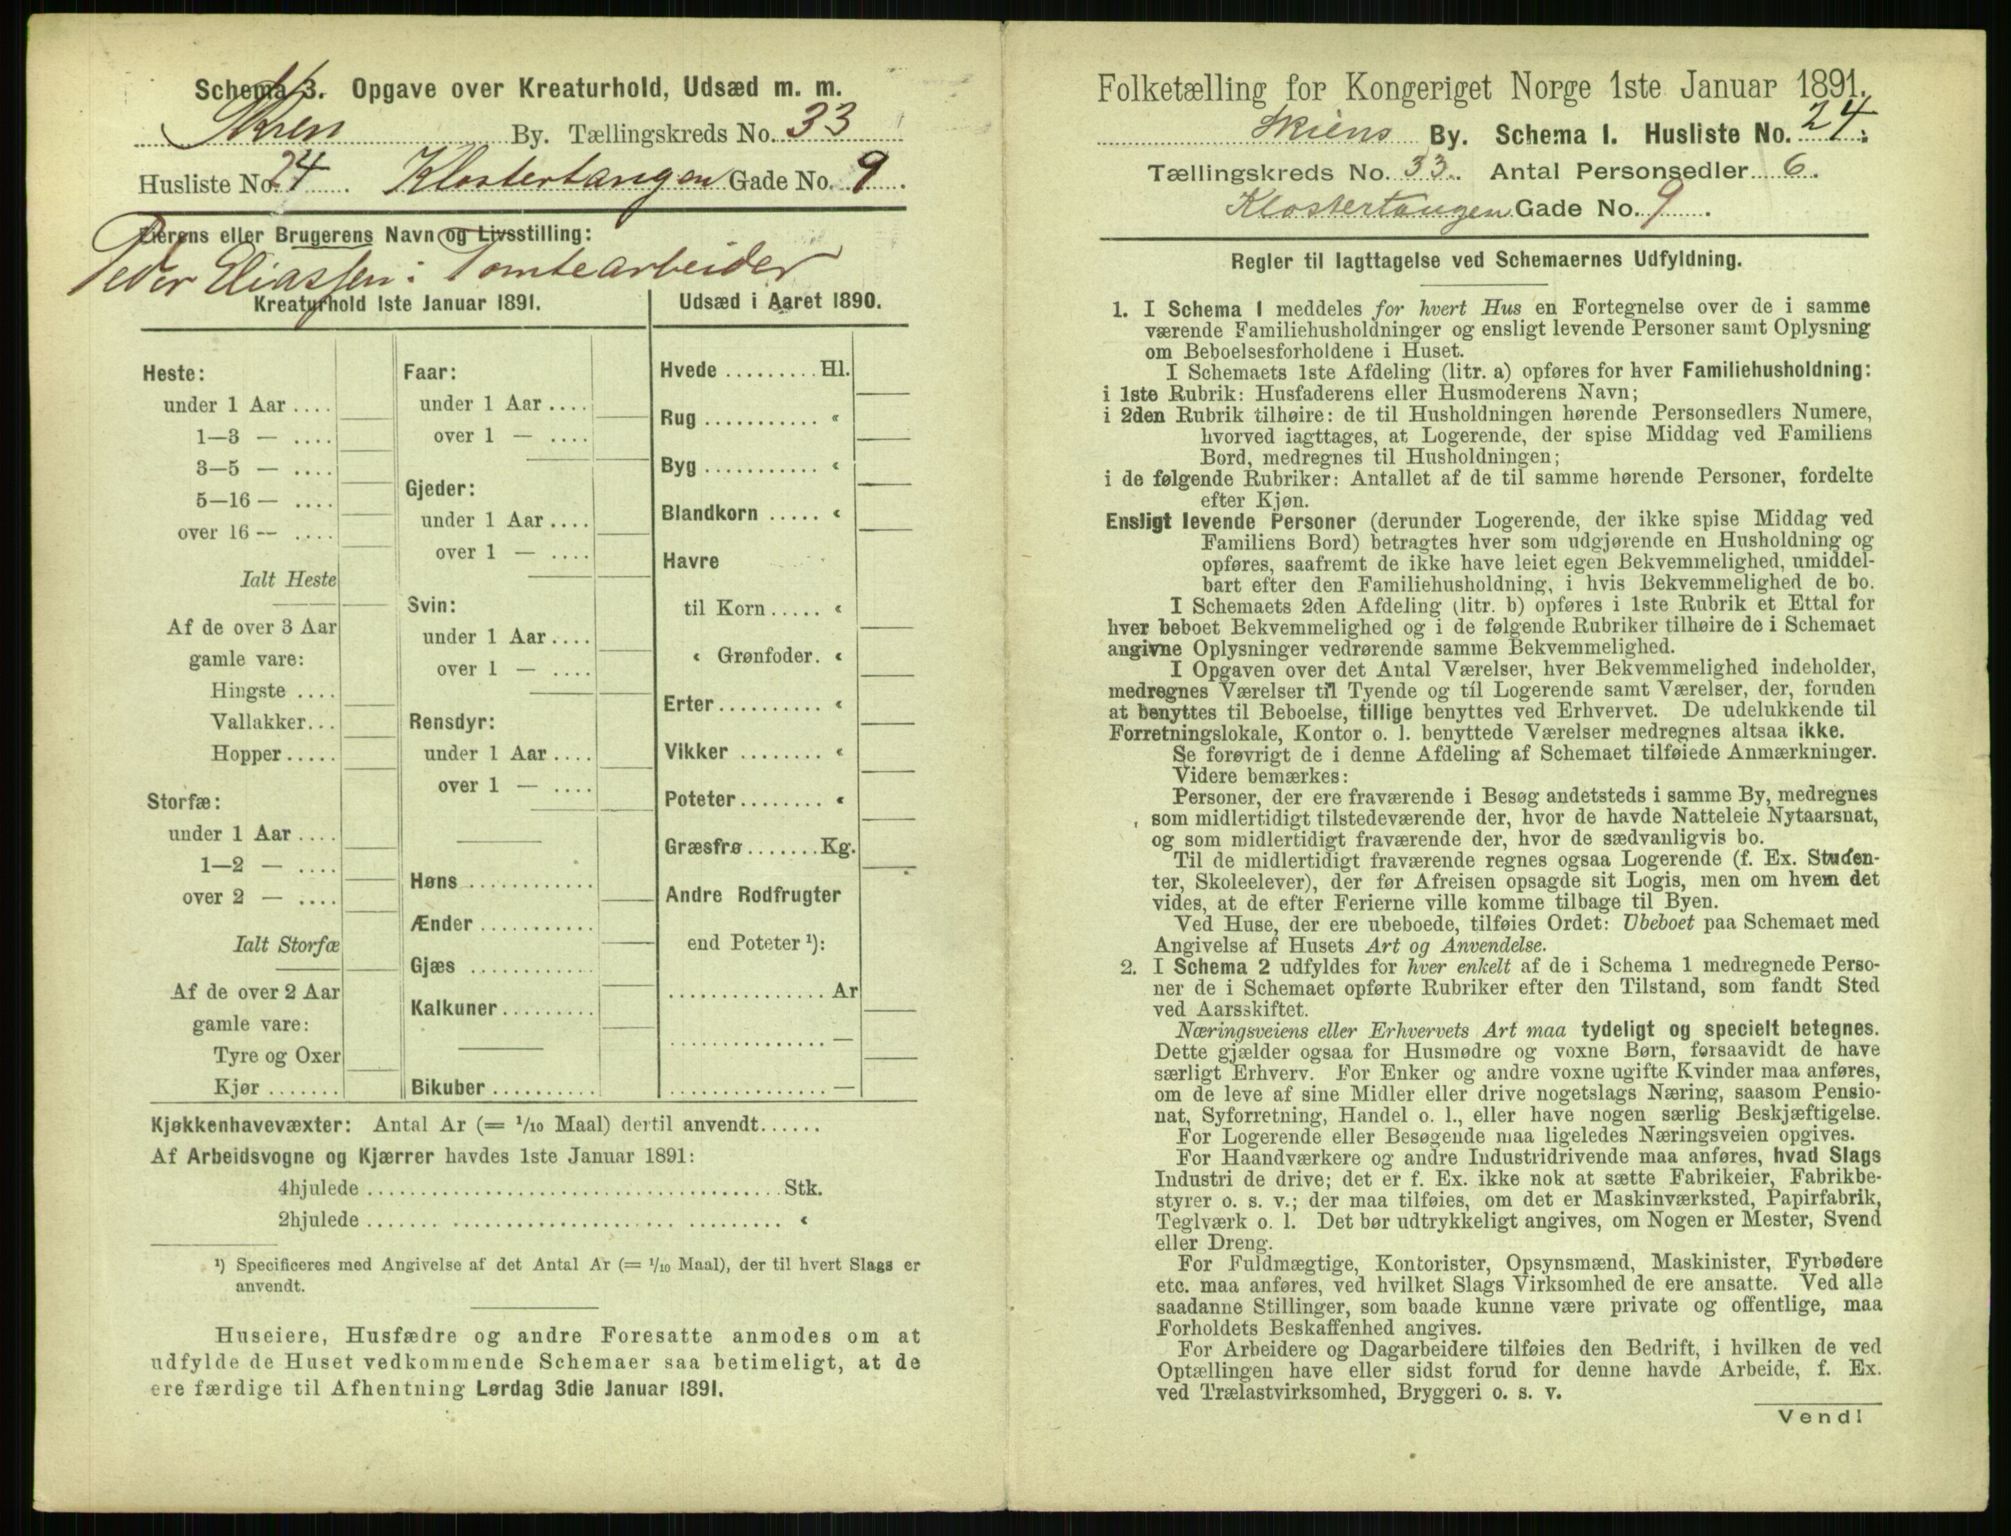 Schema 3. Opgave over Kreaturhold, Udsæd m. m.
Skien By. Tællingskreds No. 33
Husliste No. 24. Klostertangen Gade No. 9.
Eierens eller Brugerens Navn og Livsstilling:
Peder Eliassen: Tomtearbeider
Kreaturhold 1ste Januar 1891.
Heste:
under 1 Aar ....
1—3 — ....
3—5 — ....
5—16 — ....
over 16 — ....
Ialt Heste
Af de over 3 Aar
gamle vare:
Hingste ....
Vallakker...
Hopper.....
Storfæ:
under 1 Aar ....
1—2 — ....
over 2 — ....
Ialt Storfæ
Af de over 2 Aar
gamle vare:
Tyre og Oxer
Kjør .......
Faar:
under 1 Aar ....
over 1 — ....
Gjeder:
under 1 Aar ....
over 1 — ....
Svin:
under 1 Aar ....
over 1 — ....
Rensdyr:
under 1 Aar ....
over 1 — ....
Høns ............
Ænder ...........
Gjæs ............
Kalkuner.........
Bikuber ..........
Udsæd i Aaret 1890.
Hvede ......... Hl.
Rug ........... «
Byg ........... «
Blandkorn ..... «
Havre
til Korn ..... «
« Grønfoder. «
Erter.......... «
Vikker ........ «
Poteter........ «
Græsfrø ....... Kg.
Andre Rodfrugter
end Poteter ¹):
............... Ar
............... —
............... —
Kjøkkenhavevæxter: Antal Ar (= 1/10 Maal) dertil anvendt......
Af Arbeidsvogne og Kjærrer havdes 1ste Januar 1891:
4hjulede ........................................ Stk.
2hjulede ........................................ «
¹) Specificeres med Angivelse af det Antal Ar (= 1/10 Maal), der til hvert Slags er
anvendt.
Huseiere, Husfædre og andre Foresatte anmodes om at
udfylde de Huset vedkommende Schemaer saa betimeligt, at de
ere færdige til Afhentning Lørdag 3die Januar 1891.
Folketælling for Kongeriget Norge 1ste Januar 1891.
Skiens By. Schema 1. Husliste No. 24.
Tællingskreds No. 33. Antal Personsedler 6.
Klostertangen Gade No. 9.
Regler til Iagttagelse ved Schemaernes Udfyldning.
1. I Schema 1 meddeles for hvert Hus en Fortegnelse over de i samme
værende Familiehusholdninger og ensligt levende Personer samt Oplysning
om Beboelsesforholdene i Huset.
I Schemaets 1ste Afdeling (litr. a) opføres for hver Familiehusholdning:
i 1ste Rubrik: Husfaderens eller Husmoderens Navn;
i 2den Rubrik tilhøire: de til Husholdningen hørende Personsedlers Numere,
hvorved iagttages, at Logerende, der spise Middag ved Familiens
Bord, medregnes til Husholdningen;
i de følgende Rubriker: Antallet af de til samme hørende Personer, fordelte
efter Kjøn.
Ensligt levende Personer (derunder Logerende, der ikke spise Middag ved
Familiens Bord) betragtes hver som udgjørende en Husholdning og
opføres, saafremt de ikke have leiet egen Bekvemmelighed, umiddel-
bart efter den Familiehusholdning, i hvis Bekvemmelighed de bo.
I Schemaets 2den Afdeling (litr. b) opføres i 1ste Rubrik et Ettal for
hver beboet Bekvemmelighed og i de følgende Rubriker tilhøire de i Schemaet
angivne Oplysninger vedrørende samme Bekvemmelighed.
I Opgaven over det Antal Værelser, hver Bekvemmelighed indeholder,
medregnes Værelser til Tyende og til Logerende samt Værelser, der, foruden
at benyttes til Beboelse, tillige benyttes ved Erhvervet. De udelukkende til
Forretningslokale, Kontor o. l. benyttede Værelser medregnes altsaa ikke.
Se forøvrigt de i denne Afdeling af Schemaet tilføiede Anmærkninger.
Videre bemærkes:
Personer, der ere fraværende i Besøg andetsteds i samme By, medregnes
som midlertidigt tilstedeværende der, hvor de havde Natteleie Nytaarsnat,
og som midlertidigt fraværende der, hvor de sædvanligvis bo.
Til de midlertidigt fraværende regnes ogsaa Logerende (f. Ex. Studen-
ter, Skoleelever), der før Afreisen opsagde sit Logis, men om hvem det
vides, at de efter Ferierne ville komme tilbage til Byen.
Ved Huse, der ere ubeboede, tilføies Ordet: Ubeboet paa Schemaet med
Angivelse af Husets Art og Anvendelse.
2. I Schema 2 udfyldes for hver enkelt af de i Schema 1 medregnede Perso-
ner de i Schemaet opførte Rubriker efter den Tilstand, som fandt Sted
ved Aarsskiftet.
Næringsveiens eller Erhvervets Art maa tydeligt og specielt betegnes.
Dette gjælder ogsaa for Husmødre og voxne Børn, forsaavidt de have
særligt Erhverv. For Enker og andre voxne ugifte Kvinder maa anføres,
om de leve af sine Midler eller drive nogetslags Næring, saasom Pensio-
nat, Syforretning, Handel o. l., eller have nogen særlig Beskjæftigelse.
For Logerende eller Besøgende maa ligeledes Næringsveien opgives.
For Haandværkere og andre Industridrivende maa anføres, hvad Slags
Industri de drive; det er f. Ex. ikke nok at sætte Fabrikeier, Fabrikbe-
styrer o. s. v.; der maa tilføies, om det er Maskinværksted, Papirfabrik,
Teglværk o. l. Det bør udtrykkeligt angives, om Nogen er Mester, Svend
eller Dreng.
For Fuldmægtige, Kontorister, Opsynsmænd, Maskinister, Fyrbødere
etc. maa anføres, ved hvilket Slags Virksomhed de ere ansatte. Ved alle
saadanne Stillinger, som baade kunne være private og offentlige, maa
Forholdets Beskaffenhed angives.
For Arbeidere og Dagarbeidere tilføies den Bedrift, i hvilken de ved
Optællingen have eller sidst forud for denne havde Arbeide, f. Ex.
ved Trælastvirksomhed, Bryggeri o. s. v.
Vend!